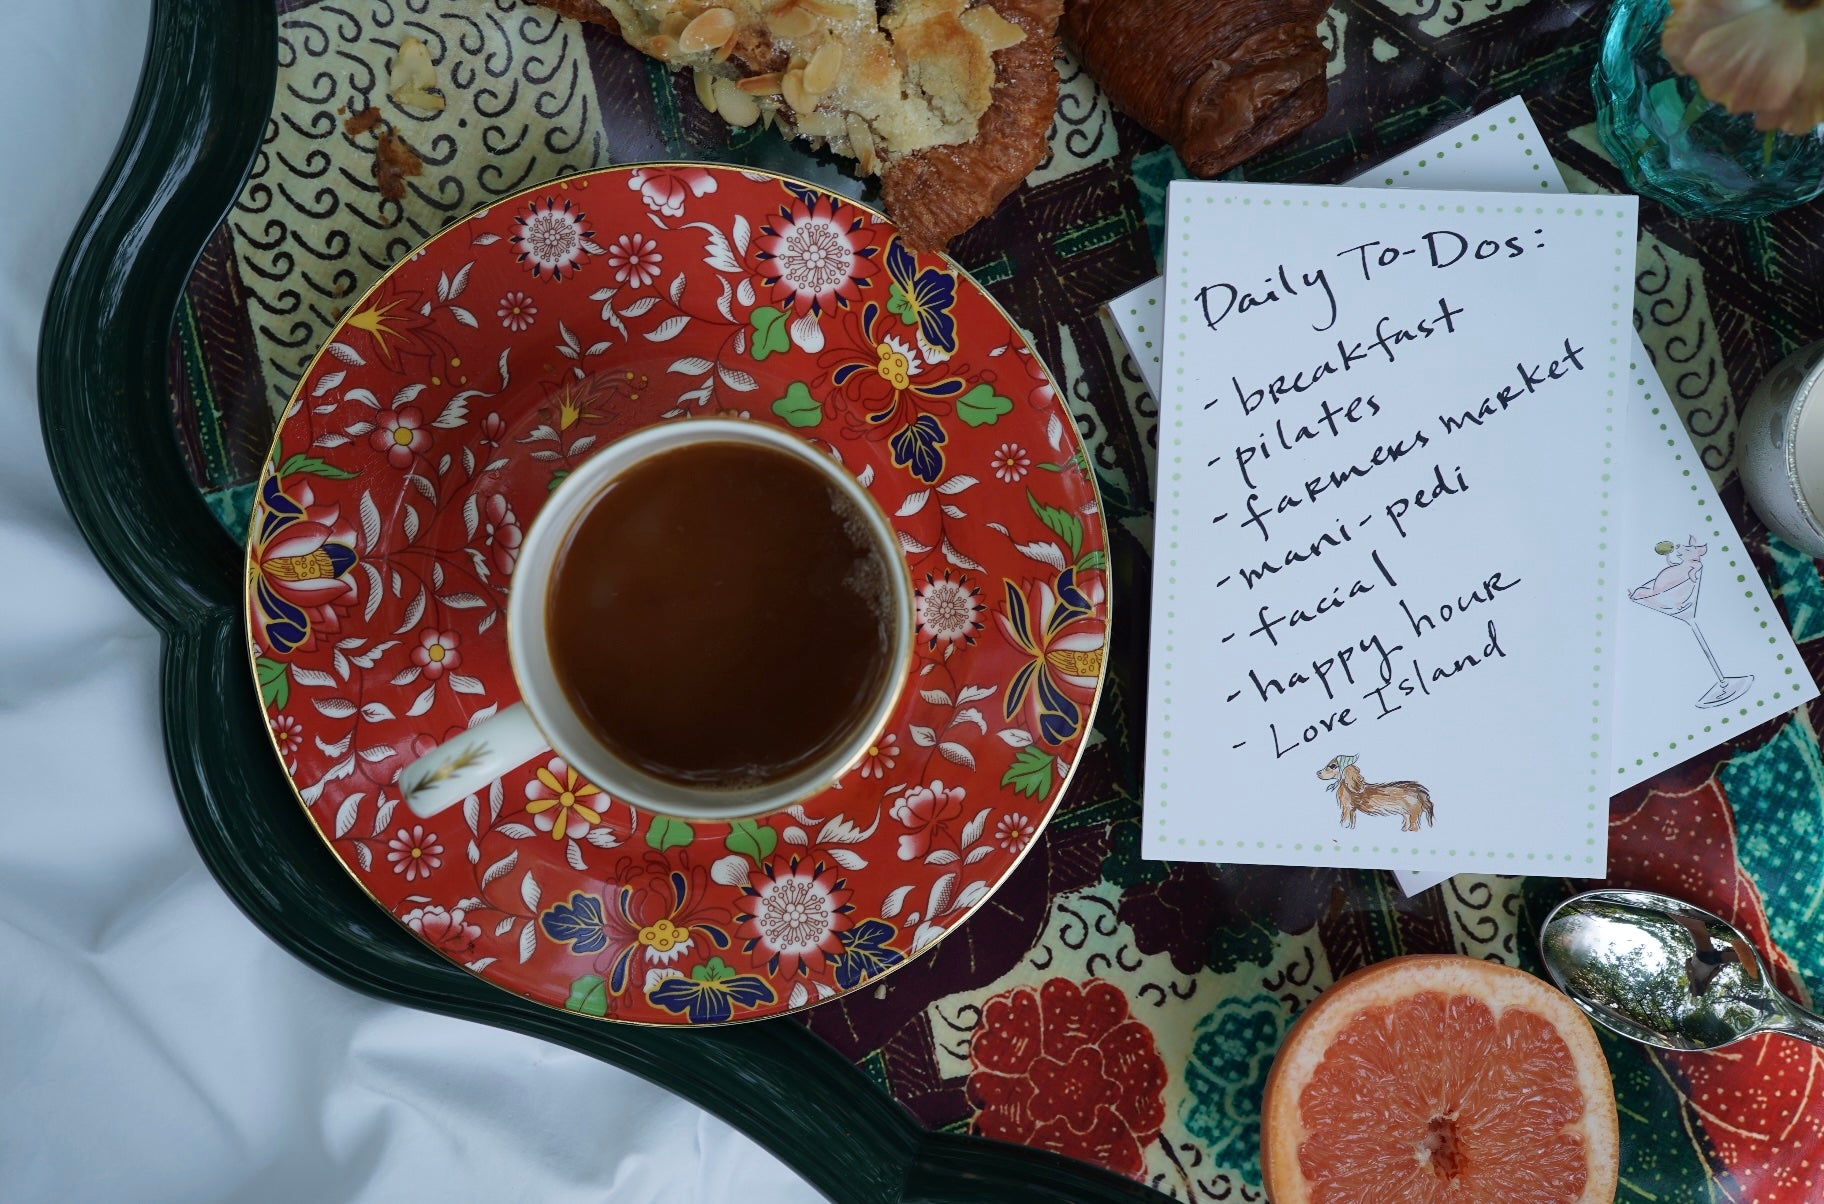 Daily To-Dos:
- breakfast
- pilates
- farmers market
- mani-pedi
- facial
- happy hour
- Love Island